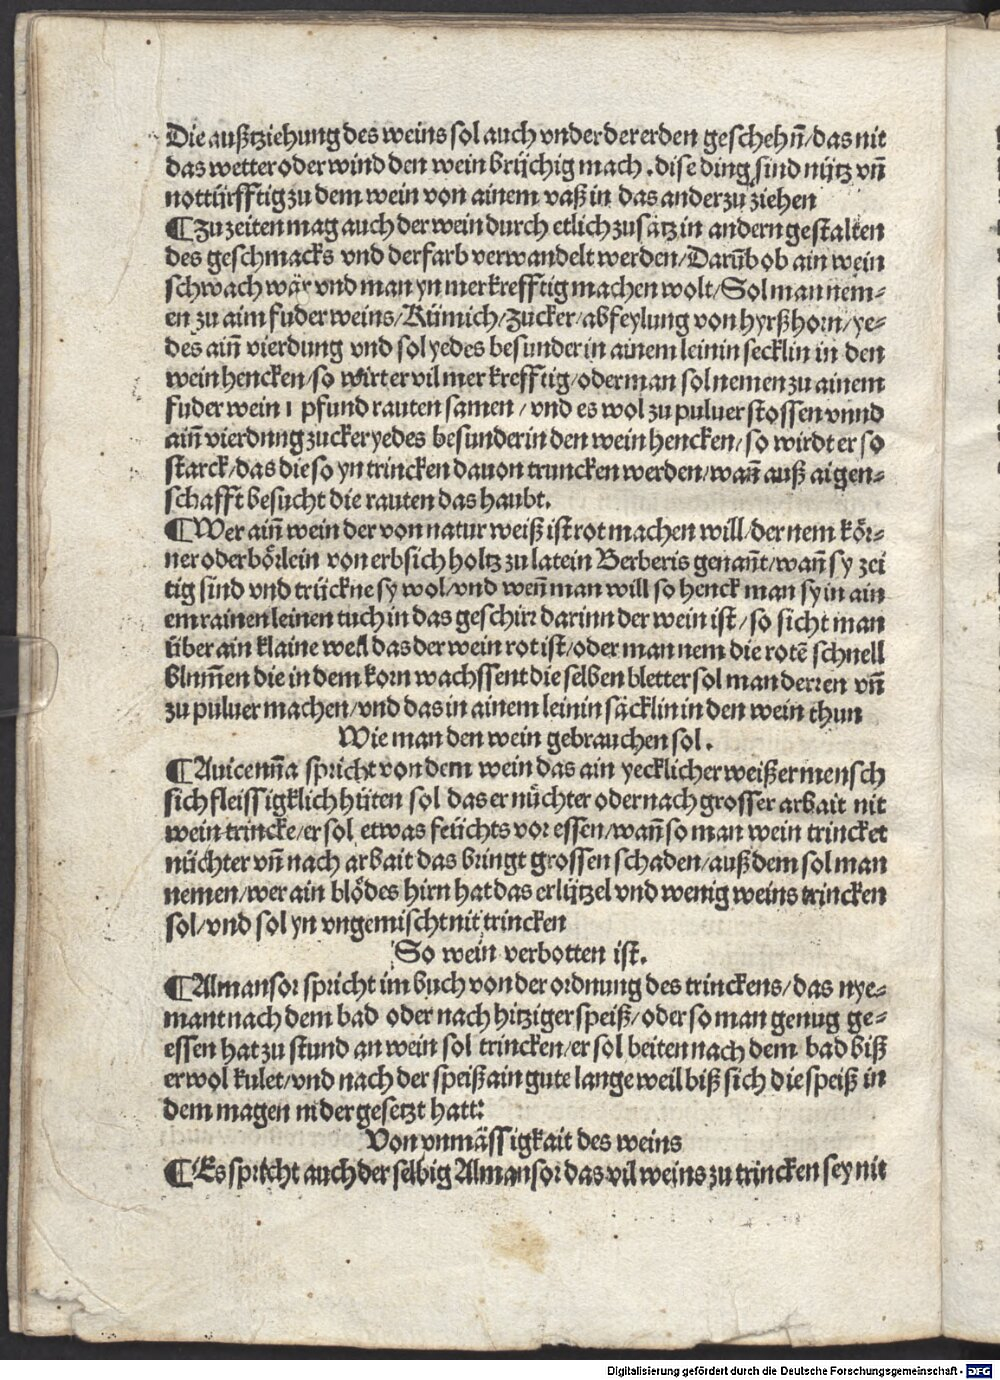 Die außtziehung des weins sol auch vnder der erden geschehñ/das nit
das wetter oder wind den wein brüchig mach. dise ding sind nütz vñ
nottürfftig zu dem wein von ainem vaß in das ander zu ziehen
¶Zu zeiten mag auch der wein durch etlich zusätz in andern gestalten
des geschmacks vnd der farb verwandelt werden/Darũb ob ain wein
schwach wär vnd man yn mer krefftig machen wolt/Sol man nem⸗
en zu aim fuder weins/Kümich/Zucker/abfeylung von hyrßhorn/ye⸗
des aiñ vierdung vnd sol yedes besunder in ainem leinin secklin in den
wein hencken/so wirt er vil mer krefftig/oder man sol nemen zu ainem
fuder wein 1 pfund rauten samen/vnd es wol zu puluer stossen vnnd
aiñ vierdnng zucker yedes besunder in den wein hencken/so wirdt er so
starck/das die so yn trincken dauon truncken werden/wañ auß aigen⸗
schafft besucht die rauten das haubt.
¶Wer aiñ wein der von natur weiß ist rot machen will/der nem kör⸗
ner oder börlein von erbsich holtz zu latein Berberis genañt/wañ sy zei
tig sind vnd trückne sy wol/vnd weñ man will so henck man sy in ain
em rainen leinen tuch in das geschirr darinn der wein ist/so sicht man
über ain klaine weil das der wein rot ist/oder man nem die rotẽ schnell
blnm̃en die in dem korn wachssent die selben bletter sol man derren vñ
zu puluer machen/vnd das in ainem leinin säcklin in den wein thun
Wie man den wein gebrauchen sol.
¶Auicenña spricht von dem wein das ain yecklicher weißer mensch
sich fleissigklich hüten sol das er nüchter oder nach grosser arbait nit
wein trincke/er sol etwas feüchts vor essen/wañ so man wein trincket
nüchter vñ nach arbait das bringt grossen schaden/auß dem sol man
nemen/wer ain blödes hirn hat das er lützel vnd wenig weins trincken
sol/vnd sol yn vngemischt nit trincken
So wein verbotten ist.
¶Almansor spricht im buch von der ordnung des trinckens/das nye⸗
mant nach dem bad oder nach hitziger speiß/oder so man genug ge⸗
essen hat zu stund an wein sol trincken/er sol beiten nach dem bad biß
er wol kulet/vnd nach der speiß ain gute lange weil biß sich die speiß in
dem magen nider gesetzt hatt:
Von vnmässigkait des weins
¶Es spricht auch der selbig Almansor das vil weins zu trincken sey nit
Digitalisierung gefördert durch die Deutsche Forschungsgemeinschaft - DFG